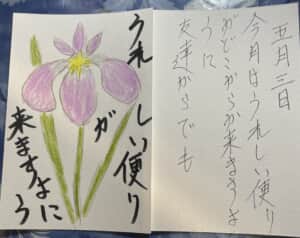 うれしい便り
が
来ますように
五月三日
今月はうれしい便り
がどこからか来ますよ
うに
友達からでも